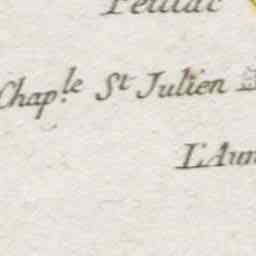 Chap.le St Julien
L'Aun